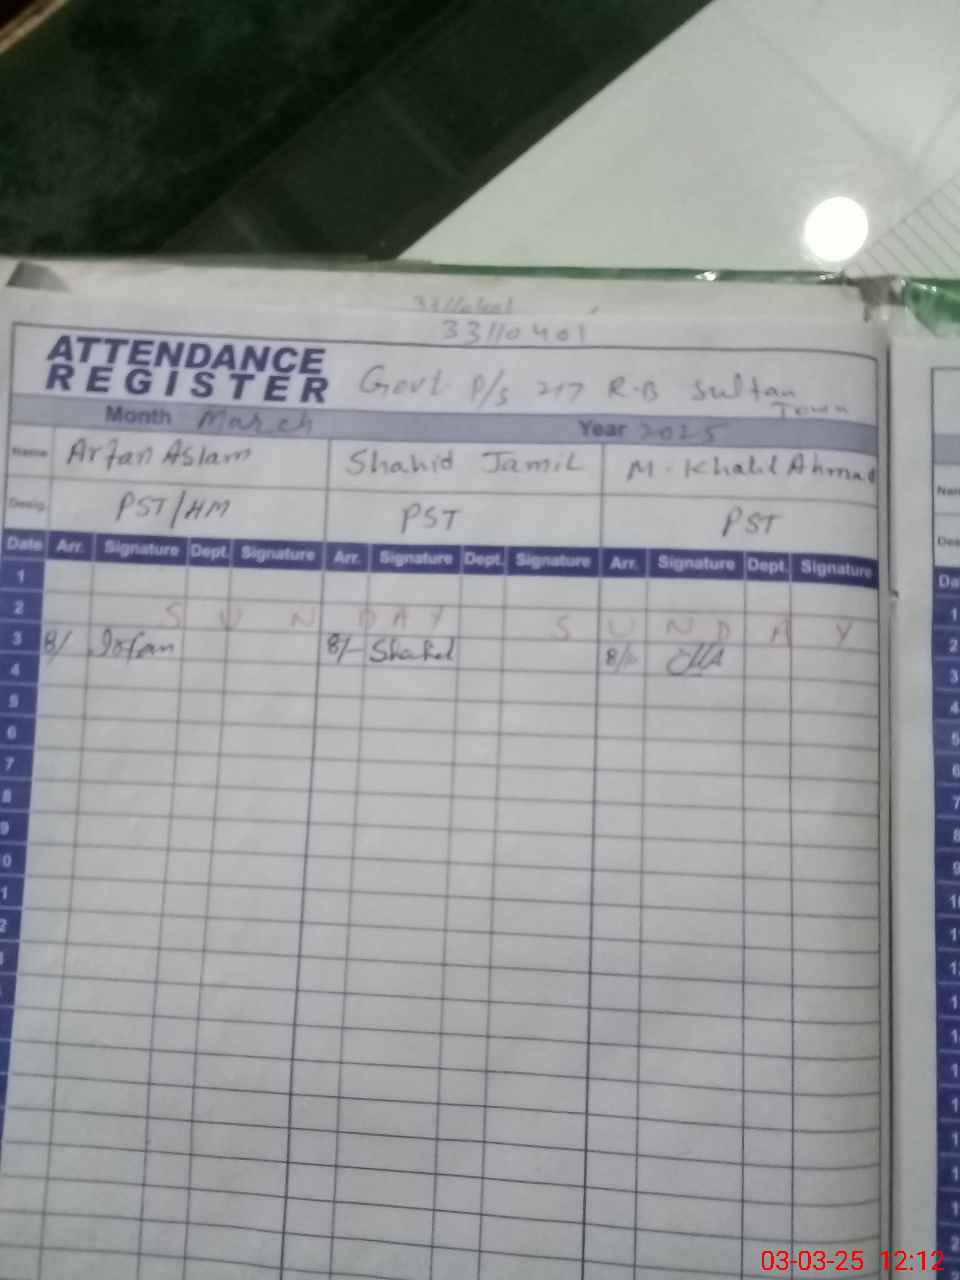 33110401
33110401
ATTENDANCE
REGISTER
Govt P/S 217 R.B Sultan
Town
Month March Year 2025
Name Arfan Aslam Shahid Jamil M. Khalil Ahmad
Desig. PST/HM PST PST
Date Arr. Signature Dept. Signature Arr. Signature Dept. Signature Arr. Signature Dept. Signature
1
2 S U N D A Y S U N D A Y
3 8/ Irfan 8/- Shahid 8/-
4
5
6
7
8
9
0
1
2
Da
1
2
3
4
5
6
7
8
9
03-03-25 12:12